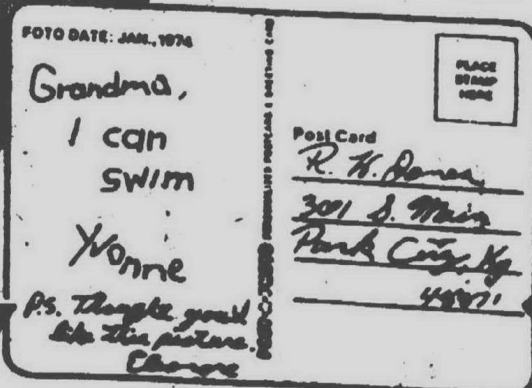 FOTO DATE: JAN., 1974
Grandma,
I can
swim
Yvonne
P.S. Thought you'd
like this picture.
Eleanore
PLACE
STAMP
HERE
Post Card
R. H.
301 S. Main
Park City, Ky